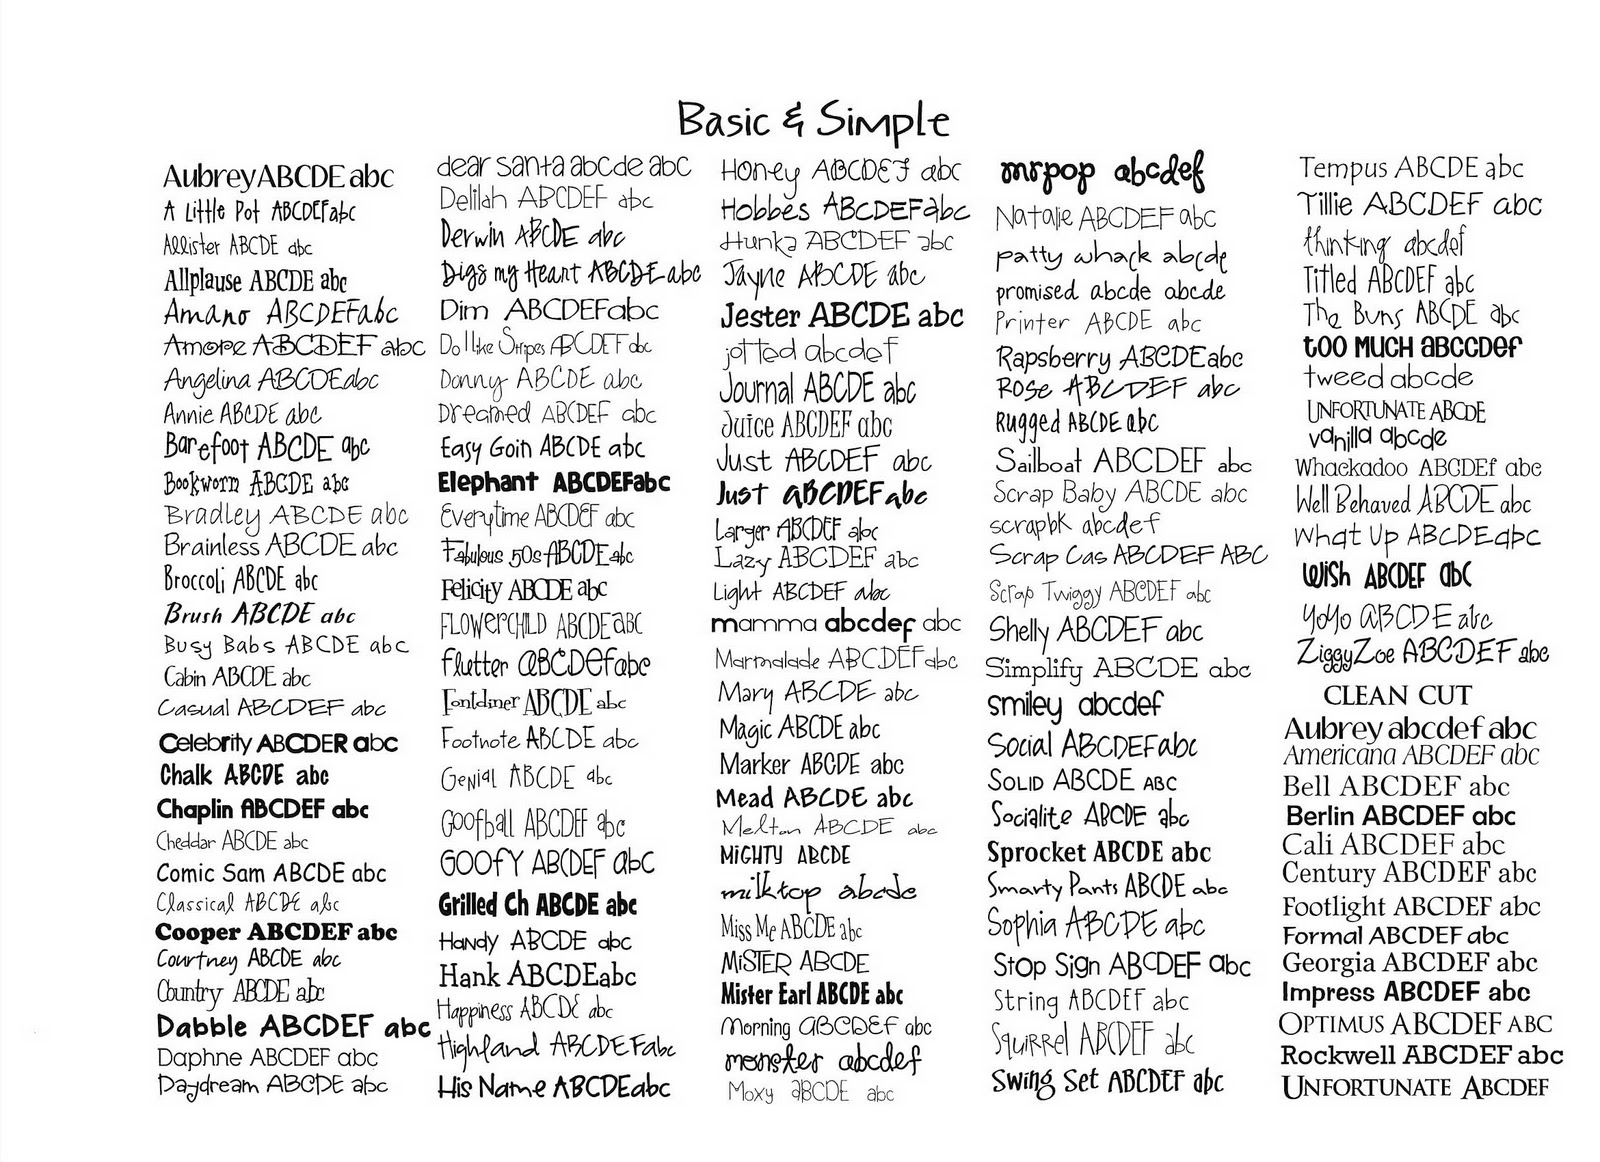 Basic & Simple
Aubrey ABCDE abc
A Little Pot ABCDEFabc
Allister ABCDE abc
Allplause ABCDE abc
Amano ABCDEFabc
Amore ABCDEF abc
Angelina ABCDEabc
Annie ABCDE abc
Barefoot ABCDE abc
Bookworm ABCDE abc
Bradley ABCDE abc
Brainless ABCDE abc
Broccoli ABCDE abc
Brush ABCDE abc
Busy Babs ABCDE abc
Cabin ABCDE abc
Casual ABCDEF abc
Celebrity ABCDER abc
Chalk ABCDE abc
Chaplin ABCDEF abc
Cheddar ABCDE abc
Comic Sam ABCDE abc
Classical ABCDE abc
Cooper ABCDEF abc
Courtney ABCDE abc
Country ABCDE abc
Dabble ABCDEF abc
Daphne ABCDEF abc
Daydream ABCDE abc
dear santa abcde abc
Delilah ABCDEF abc
Derwin ABCDE abc
Digs my Heart ABCDE abc
Dim ABCDEFabc
Do I like Stripes ABCDEF abc
Donny ABCDE abc
Dreamed ABCDEF abc
Easy Goin ABCDE abc
Elephant ABCDEFabc
Everytime ABCDEF abc
Fabulous 50s ABCDE abc
Felicity ABCDE abc
FLOWerCHILD ABCDE aBC
flutter aBCDefabc
Fontdiner ABCDE abc
Footnote ABCDE abc
Genial ABCDE abc
Goofball ABCDEF abc
GOOfY ABCDEF abC
Grilled Ch ABCDE abc
Handy ABCDE abc
Hank ABCDEabc
Happiness ABCDE abc
Highland ABCDEFabc
His Name ABCDEabc
Honey ABCDEF abc
Hobbes ABCDEFabc
Hunka ABCDEF abc
Jayne ABCDE abc
Jester ABCDE abc
jotted abcdef
Journal ABCDE abc
Juice ABCDEF abc
Just ABCDEF abc
Just ABCDEF abc
Larger ABCDEF abc
Lazy ABCDEF abc
Light ABCDEF abc
mamma abcdef abc
Marmalade ABCDEF abc
Mary ABCDE abc
Magic ABCDE abc
Marker ABCDE abc
Mead ABCDE abc
Melton ABCDE abc
MiGHTY ABCDE
milktop abcde
Miss Me ABCDE abc
MiSTER ABCDE
Mister Earl ABCDE abc
Morning aBCDEf abc
monster abcdef
Moxy aBCDE abc
mrpop abcdef
Natalie ABCDEF abc
patty whack abcde
promised abcde abcde
Printer ABCDE abc
Rapsberry ABCDEabc
Rose ABCDEF abc
Rugged ABCDE abc
Sailboat ABCDEF abc
Scrap Baby ABCDE abc
scrapbk abcdef
Scrap Cas ABCDEF ABC
Scrap Twiggy ABCDEF abc
Shelly ABCDEF abc
Simplify ABCDE abc
smiley abcdef
Social ABCDEFabc
SOLID ABCDE ABC
Socialite ABCDE abc
Sprocket ABCDE abc
Smarty Pants ABCDE abc
Sophia ABCDE abc
Stop Sign ABCDEF abc
String ABCDEF abc
Squirrel ABCDEF abc
Swing Set ABCDEF abc
Tempus ABCDE abc
Tillie ABCDEF abc
thinking abcdef
Titled ABCDEF abc
The Buns ABCDE abc
tOO MUCH aBCCDef
tweed abcde
UNFORTUNATE ABCDE
vanilla abcde
Whackadoo ABCDEf abc
Well Behaved ABCDE abc
What Up ABCDEabc
Wish ABCDEF abc
YoYo ABCDE abc
ZiggyZoe ABCDEF abc
CLEAN CUT
Aubrey abcdef abc
Americana ABCDEF abc
Bell ABCDEF abc
Berlin ABCDEF abc
Cali ABCDEF abc
Century ABCDEF abc
Footlight ABCDEF abc
Formal ABCDEF abc
Georgia ABCDEF abc
Impress ABCDEF abc
OPTIMUS ABCDEF ABC
Rockwell ABCDEF abc
UNFORTUNATE ABCDEF